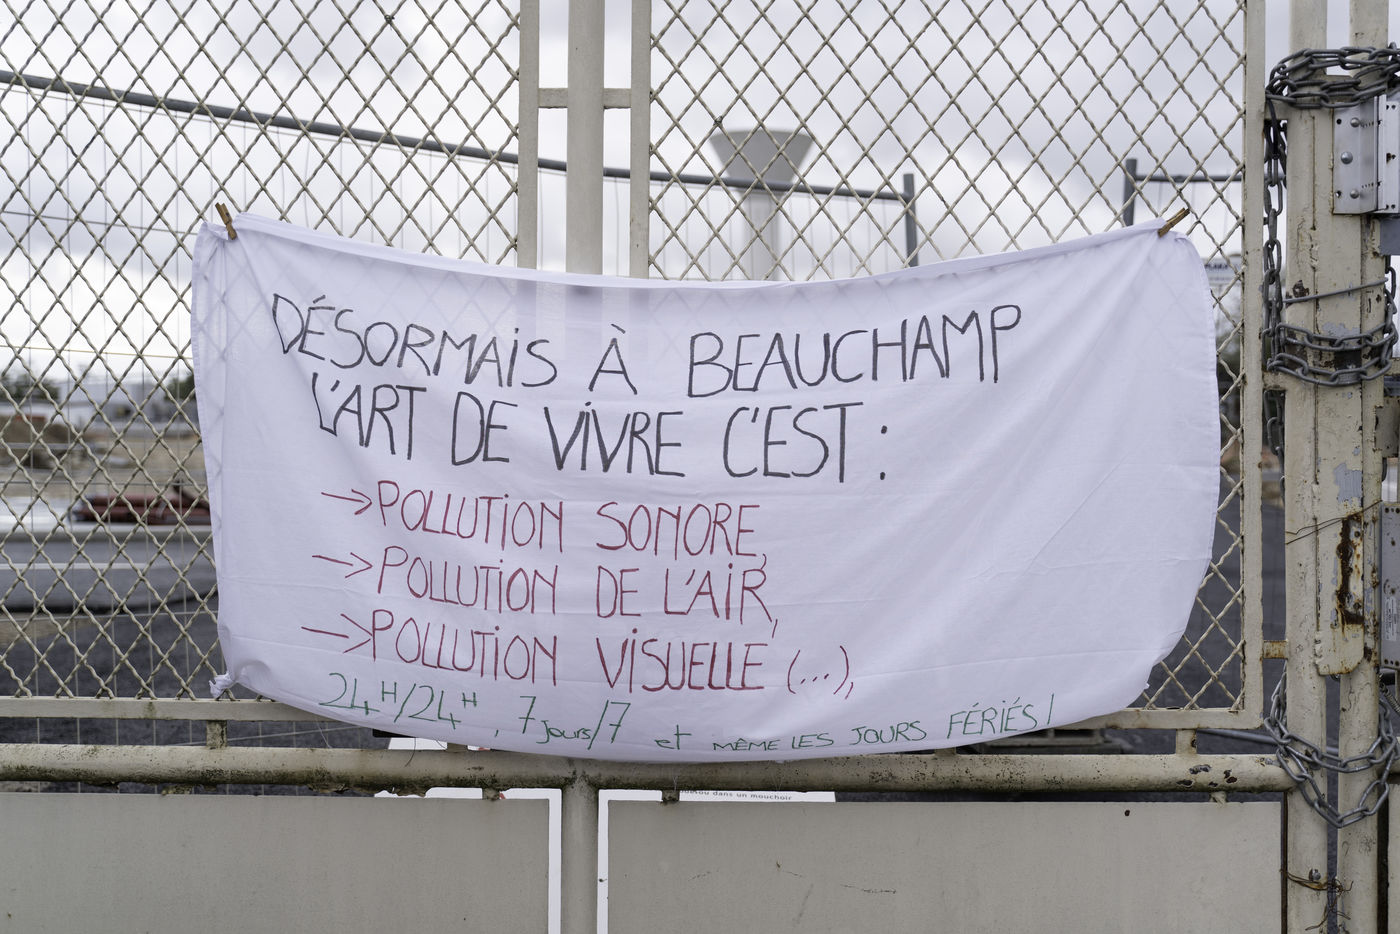 DÉSORMAiS À BEAUCHAMP
L'ART DE ViVRE C'EST :
→ POLLUTiON SONORE,
→ POLLUTiON DE L'AiR,
→ POLLUTiON ViSUELLE (...),
24H/24H, 7 jours/7 et MÊME LES JOURS FÉRIÉS !
dans un mouchoir